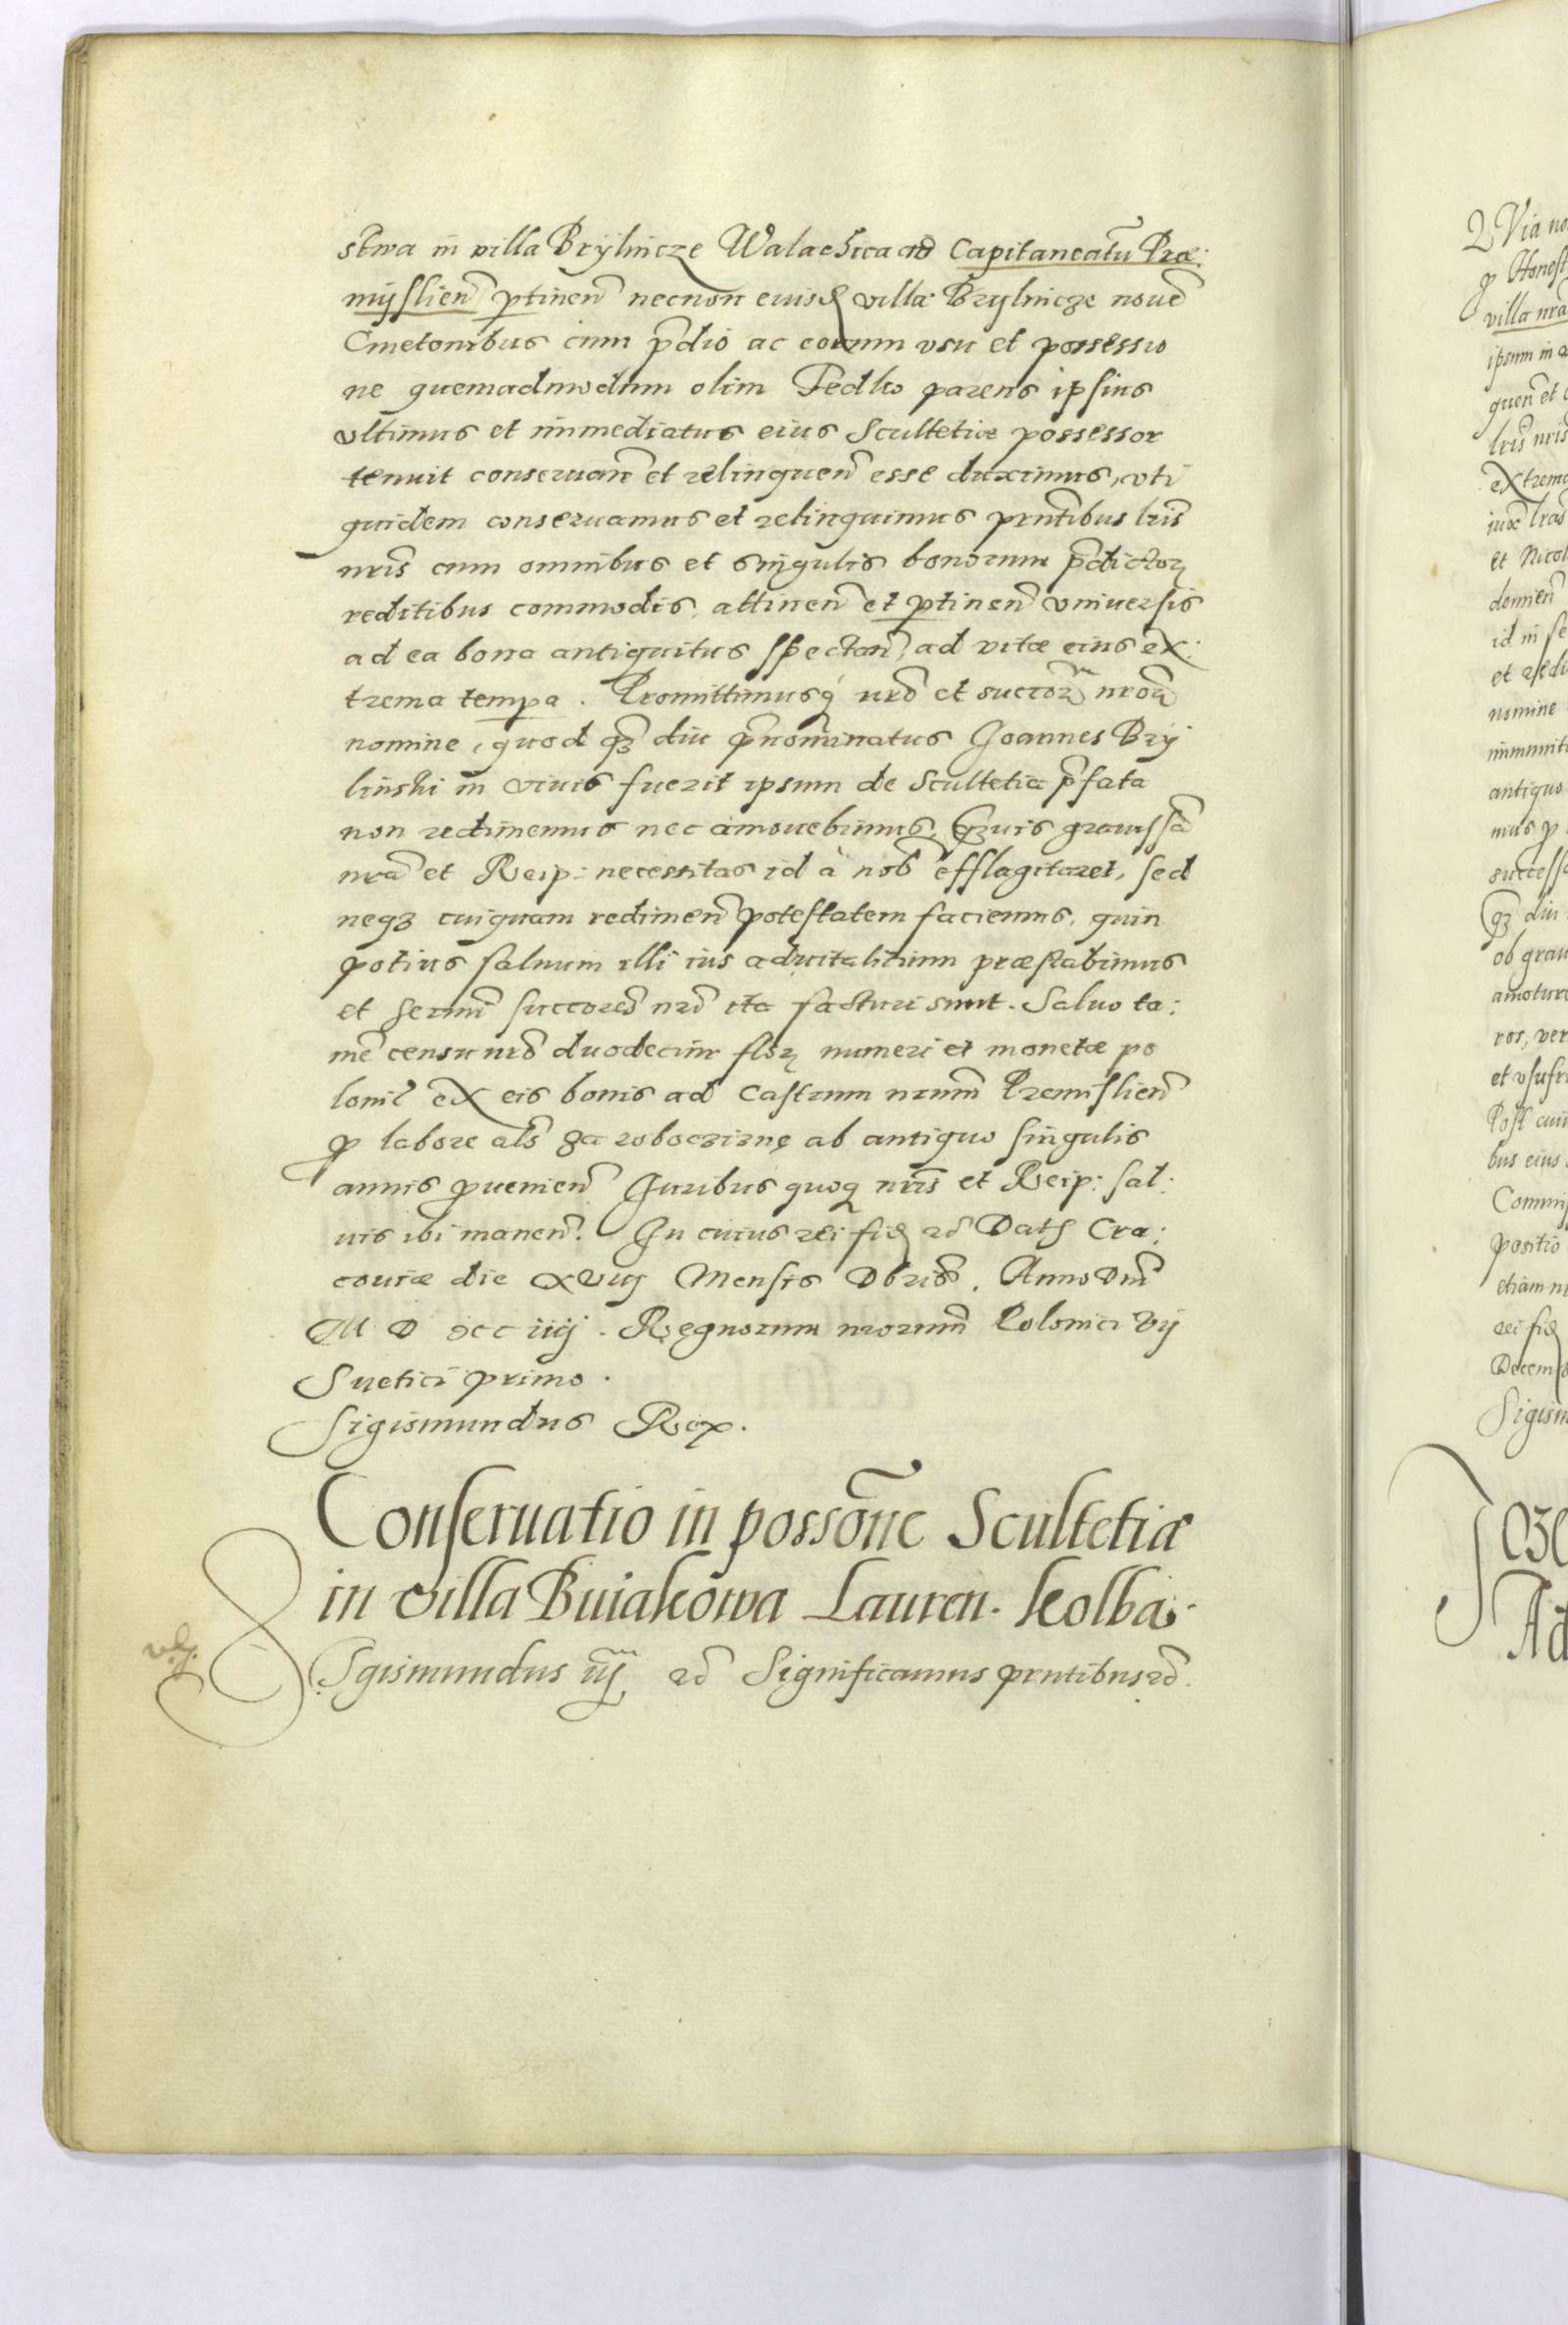 stwa in villa Brÿlnicze Walachica ad Capitaneatū Præ:
mÿslien̄ ptinen̄ necnon euisd villæ Brylnicze nouē
Cmetonibus cum p̄dio ac eorum vsu et possessio
ne quemadmodum olim Fedko parens ipsius
vltimus et immediatus eius Scultetiæ possessor
tenuit conseruan̄ et relinquen̄ esse duximus, vti
quidem conseruamus et relinquimus prn̄tibus lrīs
nrīs cum omnibus et singulis bonorum p̄dictorꝝ
reditibus commodis, attinen̄ et ptinen̄ vniuersis
ad ea bona antiquitus spectan̄, ad vitæ eius ex:
trema tempa. Promittimusq nr̄o et succor̄ nror̄
nomine, quod qꝫ̄ diu p̄nominatus Joannes Brÿ
linski in viuis fuerit ipsum de Scultetia p̄fata
non redimemus nec amouebimus, Qꝫuis grauissā
nrā et Reip: necessitas id à nob̄ efflagitaret, sed
neqꝫ cuiquam redimen̄ potestatem faciemus, quin
potius saluum illi ius aduitalitium præstabimus
et Serenmī succores̄ nrī ita facturi sunt. Saluo ta:
mē censu nr̄o duodecim flor̄ numeri et monetæ po
lonil ex eis bonis ad Castrum nrum̄ Premislien̄
ꝓ labore als̄ za roboczizne ab antiquo singulis
annis ꝓuenien̄ Juribus quoq nrīs et Reip: sal:
uis ibi manen̄. In cuius rei fid rc̄ Datꝭ Cra:
couiæ die xviij Mensis Xbrīs. Anno Dnī
M D xcciiij. Regnorum nrorum̄ Polonici vij
Suetici primo.
Sigismundus Rex.
Conseruatio in possōne Scultetiæ
in villa Buiakowa Lauren. Kolba.
Sgismundus iij rc̄ Significamus prntibus rc̄.
Via
villa nrā
ipsum in
quen̄ et
lrīs nrīs
extrema
et Nicol
id in se
nomine
antiquo
mus ꝓ
successo
qꝫ diu
ob grau
ros, ver
et vsufr
Post cui
bus eius
Commi
positio
etiam n
rei fid
Decemb
Sigism
Ad